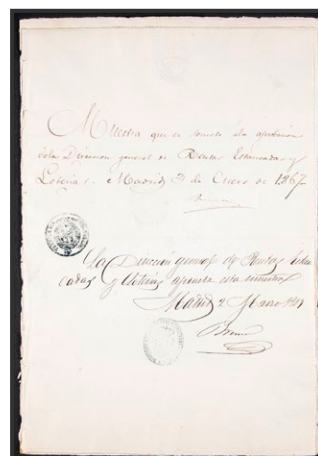 Muestra que se somete á la aprobacion
de la Direccion general de Rentas Estancadas y
Loterias. Madrid 3 de Enero de 1867
La Direccion general de Rentas Estan
cadas y Loterias aprueba esta muestra
Madrid 2 Enero